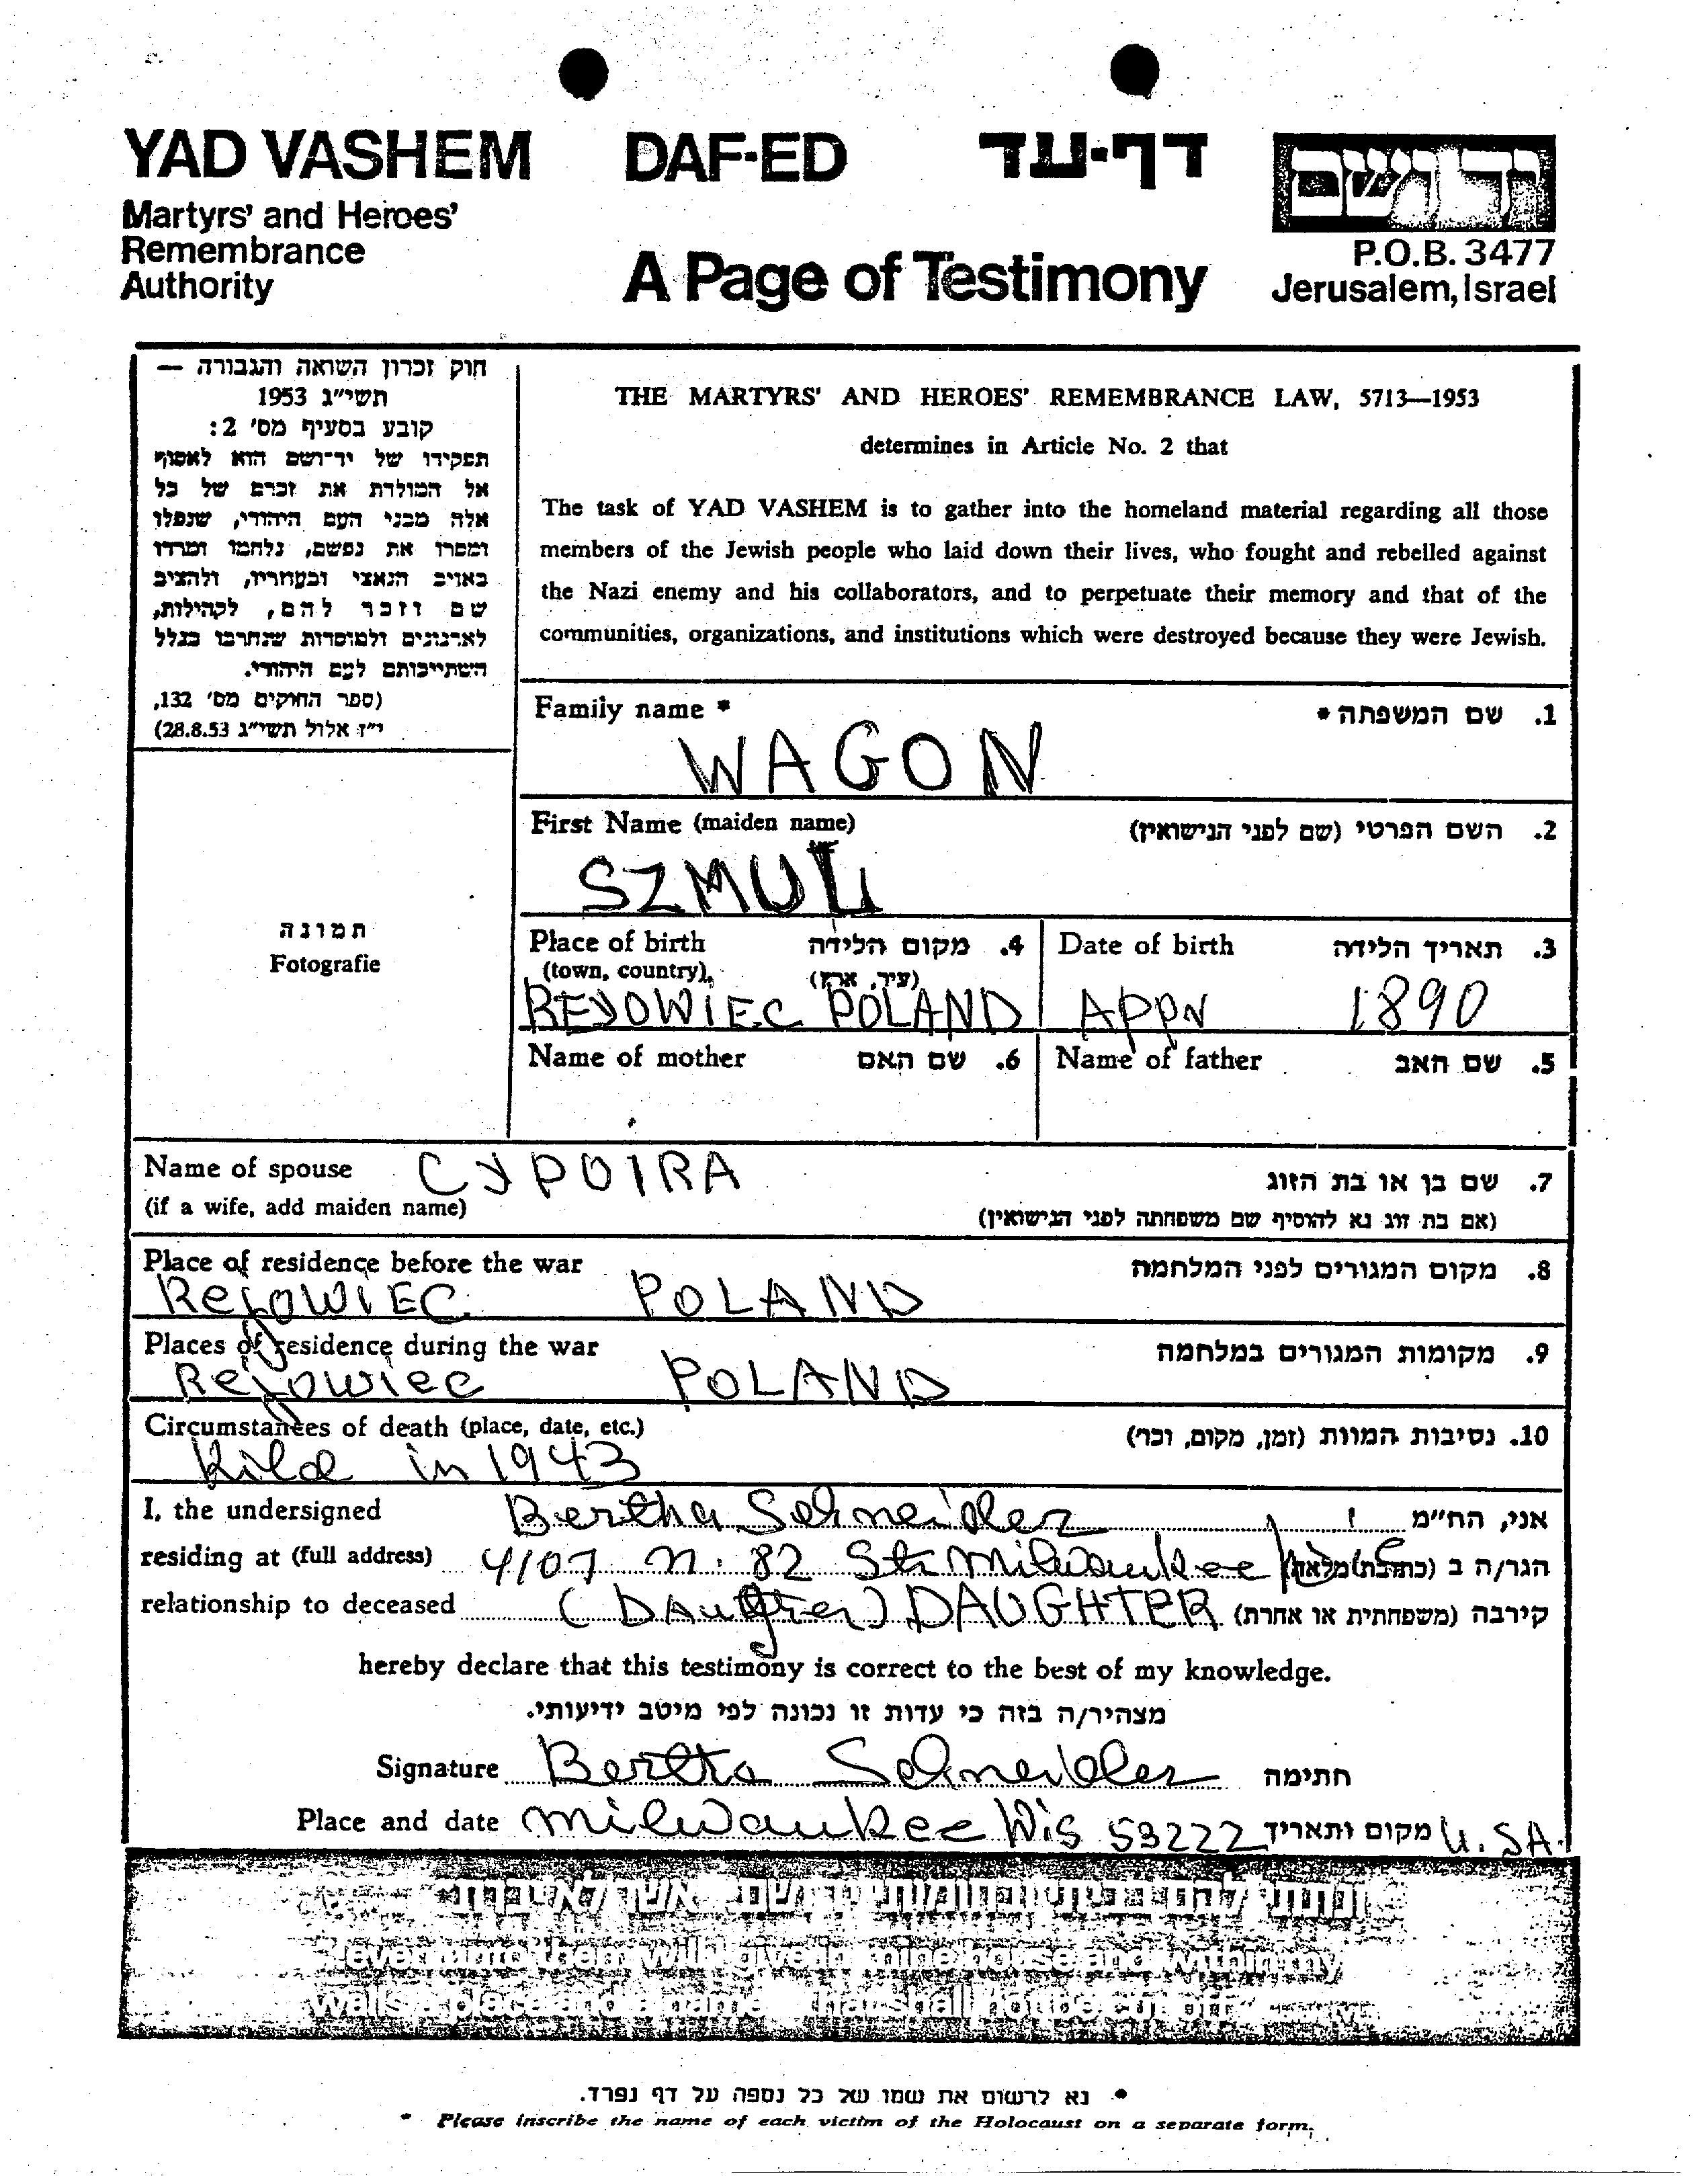 YAD VASHEM DAF-ED דף-עד
Martyrs' and Heroes'
Remembrance
Authority
A Page of Testimony
יד ושם
P.O.B. 3477
Jerusalem, Israel
חוק זכרון השואה והגבורה —
תשי״ג 1953
קובע בסעיף מס' 2:
תפקידו של יד-ושם הוא לאסוף
אל המולדת את זכרם של כל
אלה מבני העם היהודי, שנפלו
ומסרו את נפשם, נלחמו ומרדו
באויב הנאצי ובעוזריו, ולהציב
שם וזכר להם, לקהילות,
לארגונים ולמוסדות שנחרבו בגלל
השתייכותם לעם היהודי.
(ספר החוקים מס' 132,
י״ז אלול תשי״ג 28.8.53)
THE MARTYRS' AND HEROES' REMEMBRANCE LAW, 5713—1953
determines in Article No. 2 that
The task of YAD VASHEM is to gather into the homeland material regarding all those
members of the Jewish people who laid down their lives, who fought and rebelled against
the Nazi enemy and his collaborators, and to perpetuate their memory and that of the
communities, organizations, and institutions which were destroyed because they were Jewish.
Family name * 1. שם המשפחה *
WAGON
First Name (maiden name) 2. השם הפרטי (שם לפני הנישואין)
SZMUL
תמונה
Fotografie
Place of birth 4. מקום הלידה
(town, country) (עיר, ארץ)
REJOWIEC POLAND
Date of birth 3. תאריך הלידה
1890
Name of mother 6. שם האם
Name of father 5. שם האב
Name of spouse CYPOIRA 7. שם בן או בת הזוג
(if a wife, add maiden name) (אם בת זוג נא להוסיף שם משפחתה לפני הנישואין)
Place of residence before the war 8. מקום המגורים לפני המלחמה
ReJOWIEC POLAND
Places of residence during the war 9. מקומות המגורים במלחמה
Rejowiec POLAND
Circumstances of death (place, date, etc.) 10. נסיבות המוות (זמן, מקום, וכו')
Kild in 1943
I, the undersigned Bertha Schneider אני, הח״מ
residing at (full address) 4107 n. 82 St. Milwaukee הגר/ה ב (כתובת מלאה)
relationship to deceased (DAugter) DAUGHTER קירבה (משפחתית או אחרת)
hereby declare that this testimony is correct to the best of my knowledge.
מצהיר/ה בזה כי עדות זו נכונה לפי מיטב ידיעותי.
Signature Bertha Schneider חתימה
Place and date Milwaukee Wis 53222 מקום ותאריך U.SA.
ונתתי להם בביתי ובחומותי יד ושם... אשר לא יכרת
...even unto them will I give in mine house and within my
walls a place and a name... that shall not be cut off
* נא לרשום את שמו של כל נספה על דף נפרד.
* Please inscribe the name of each victim of the Holocaust on a separate form.